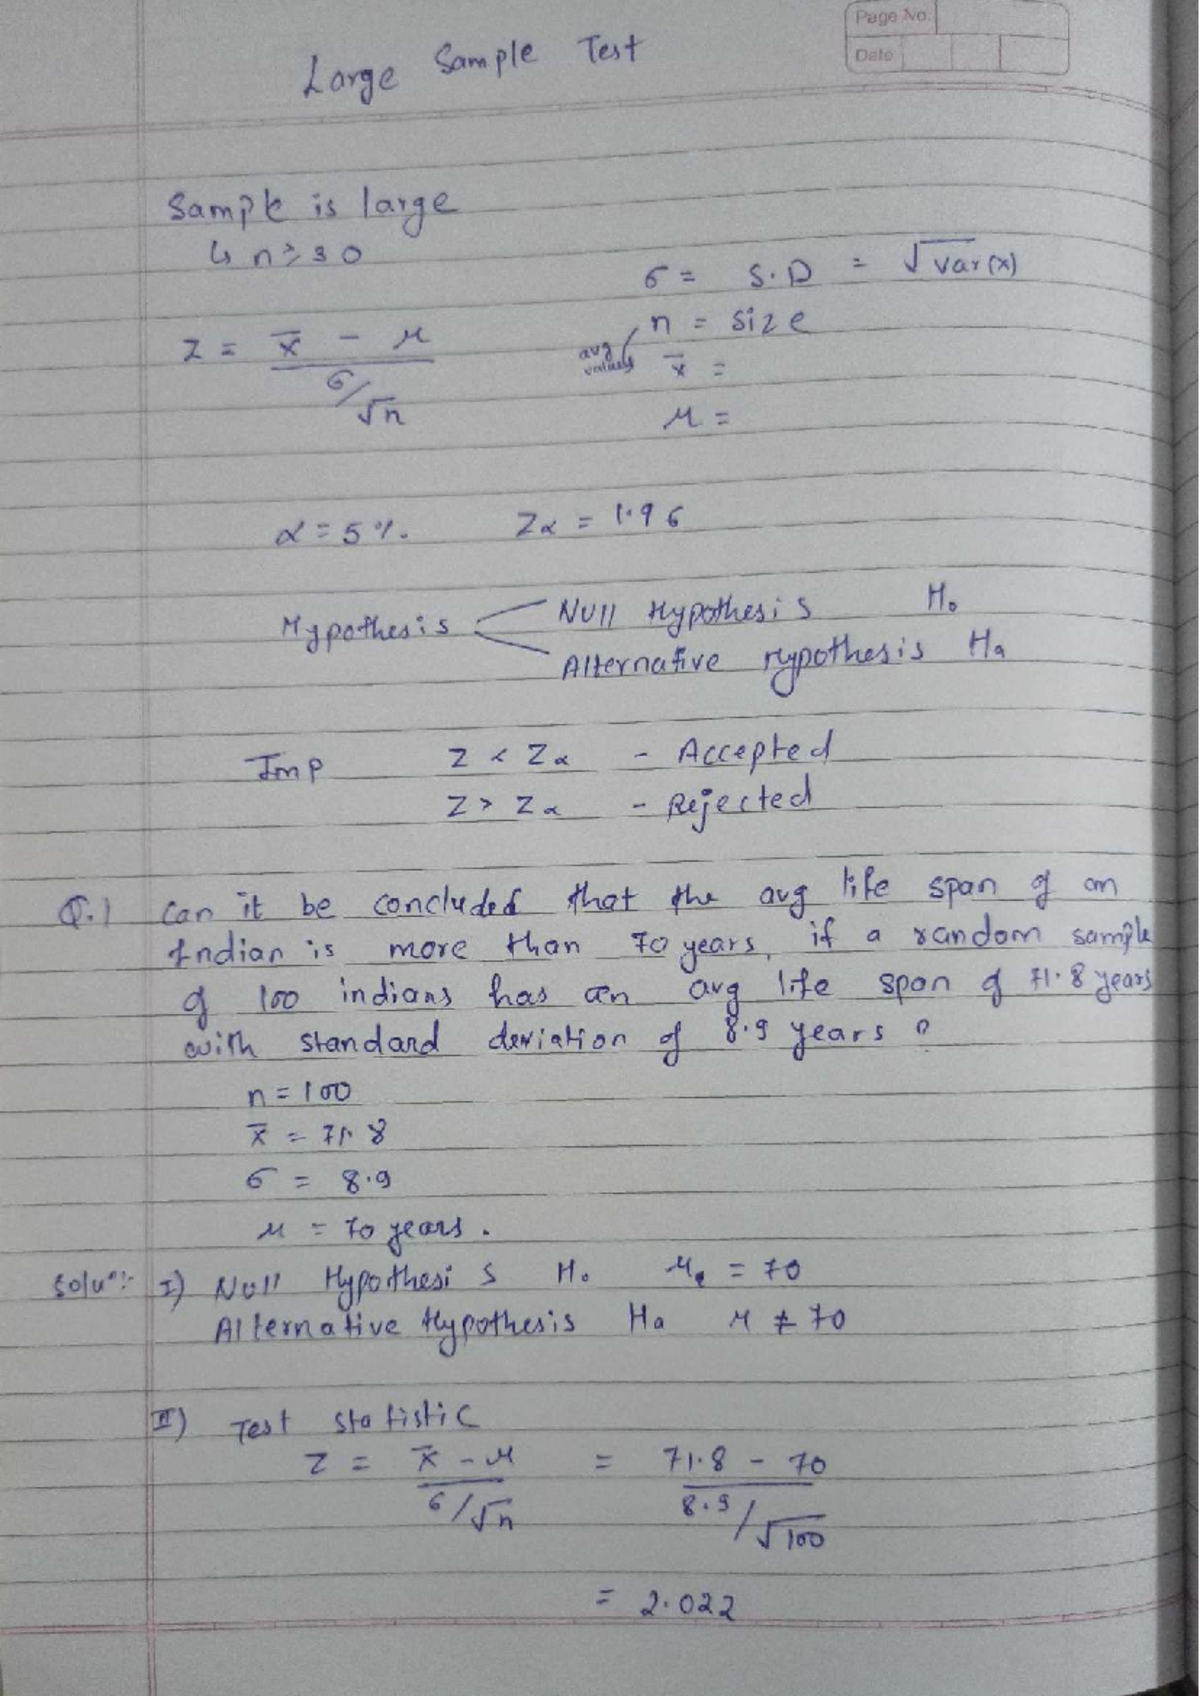 Page No.
Date
Large Sample Test
Sample is large
↳ n ≥ 30
σ = S.D = √var(x)
n = size
z = x̄ - μ / σ/√n
avg values x̄ =
μ =
α = 5%. Zα = 1.96
Hypothesis
Null Hypothesis H₀
Alternative Hypothesis Ha
Imp Z < Zα - Accepted
Z > Zα - Rejected
Q.1 Can it be concluded that the avg life span of an
Indian is more than 70 years, if a random sample
of 100 indians has an avg life span of 71.8 years
with standard deviation of 8.9 years ?
n = 100
x̄ = 71.8
σ = 8.9
μ = 70 years.
Soluⁿ:- I) Null Hypothesis H₀ μ = 70
Alternative Hypothesis Ha μ ≠ 70
II) Test statistic
z = x̄ - μ / σ/√n = 71.8 - 70 / 8.9/√100
= 2.022